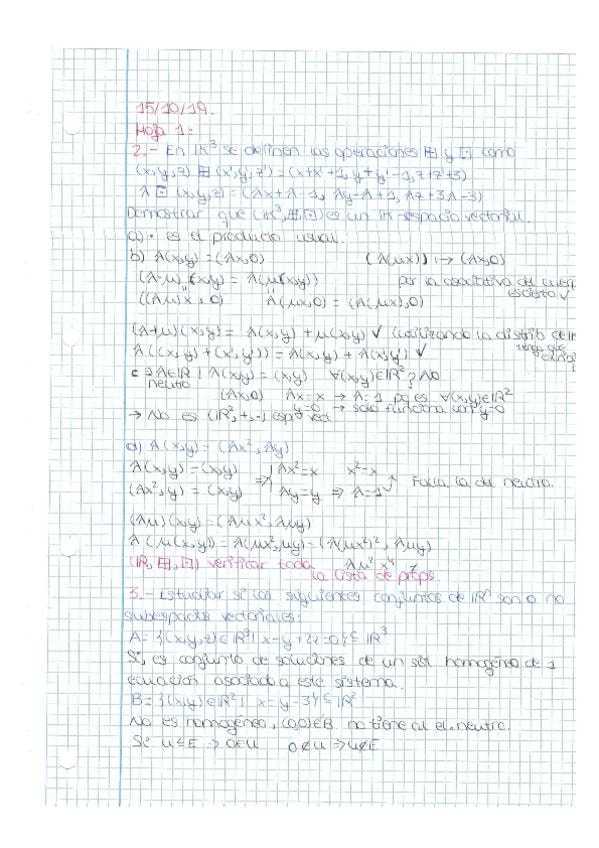 15/10/19.
Hoja 1:
2.- En IR³ se definen las operaciones ⊞ y ⊡ como
(x,y,z) ⊞ (x',y',z') = (x+x'+1, y+y'-1, z+z'+3)
λ ⊡ (x,y,z) = (λx+λ-1, λy-λ+1, λz+3λ-3)
Demostrar que (IR³,⊞,⊡) es un IK-espacio vectorial.
a) · es el producto usual.
b) λ(x,y) = (λx,0) (λ(μx)) → (λx,0)
(λ·μ)(x,y) = λ(μ(x,y)) por la asociativa del cuerp
((λμ)x, 0) λ(μx,0) = (λ(μx),0) es cierto ✓
(λ+μ)(x,y) = λ(x,y) + μ(x,y) ✓ (utilizando la distrib de
λ((x,y)+(x',y')) = λ(x,y) + λ(x',y') ✓ tengo que
c ∃ λ∈IR | λ(x,y) = (x,y) ∀(x,y)∈IR²? NO
neutro (λx,0) λx=x → λ=1 pq es ∀(x,y)∈IR²
y=0 → solo funciona con y=0
→ No es (IR²,+,·) esp vect
d) λ(x,y) = (λx², λy)
λ(x,y) = (x,y) ⇒ λx²=x x²=x
(λx²,y) = (x,y) λy=y ⇒ λ=1 Falla la del neutro.
(λμ)(x,y) = (λμx², λμy)
λ(μ(x,y)) = λ(μx²,μy) = (λ(μx²)², λμy)
λμ²x⁴
(IR,⊞,⊡) verificar toda
la lista de props.
3.- Estudiar si los siguientes conjuntos de IRⁿ son o no
subespacios vectoriales:
A = {(x,y,z)∈IR³| x-y+2z=0} ⊆ IR³
Sí, es conjunto de soluciones de un sist. homogéneo de 1
ecuación asociada a este sistema.
B = {(x,y)∈IR²| x-y=3} ⊆ IR²
No es homogéneo, (0,0)∉B no tiene al el. neutro.
Si U≤E → 0∈U 0∉U ⇒ U≰E